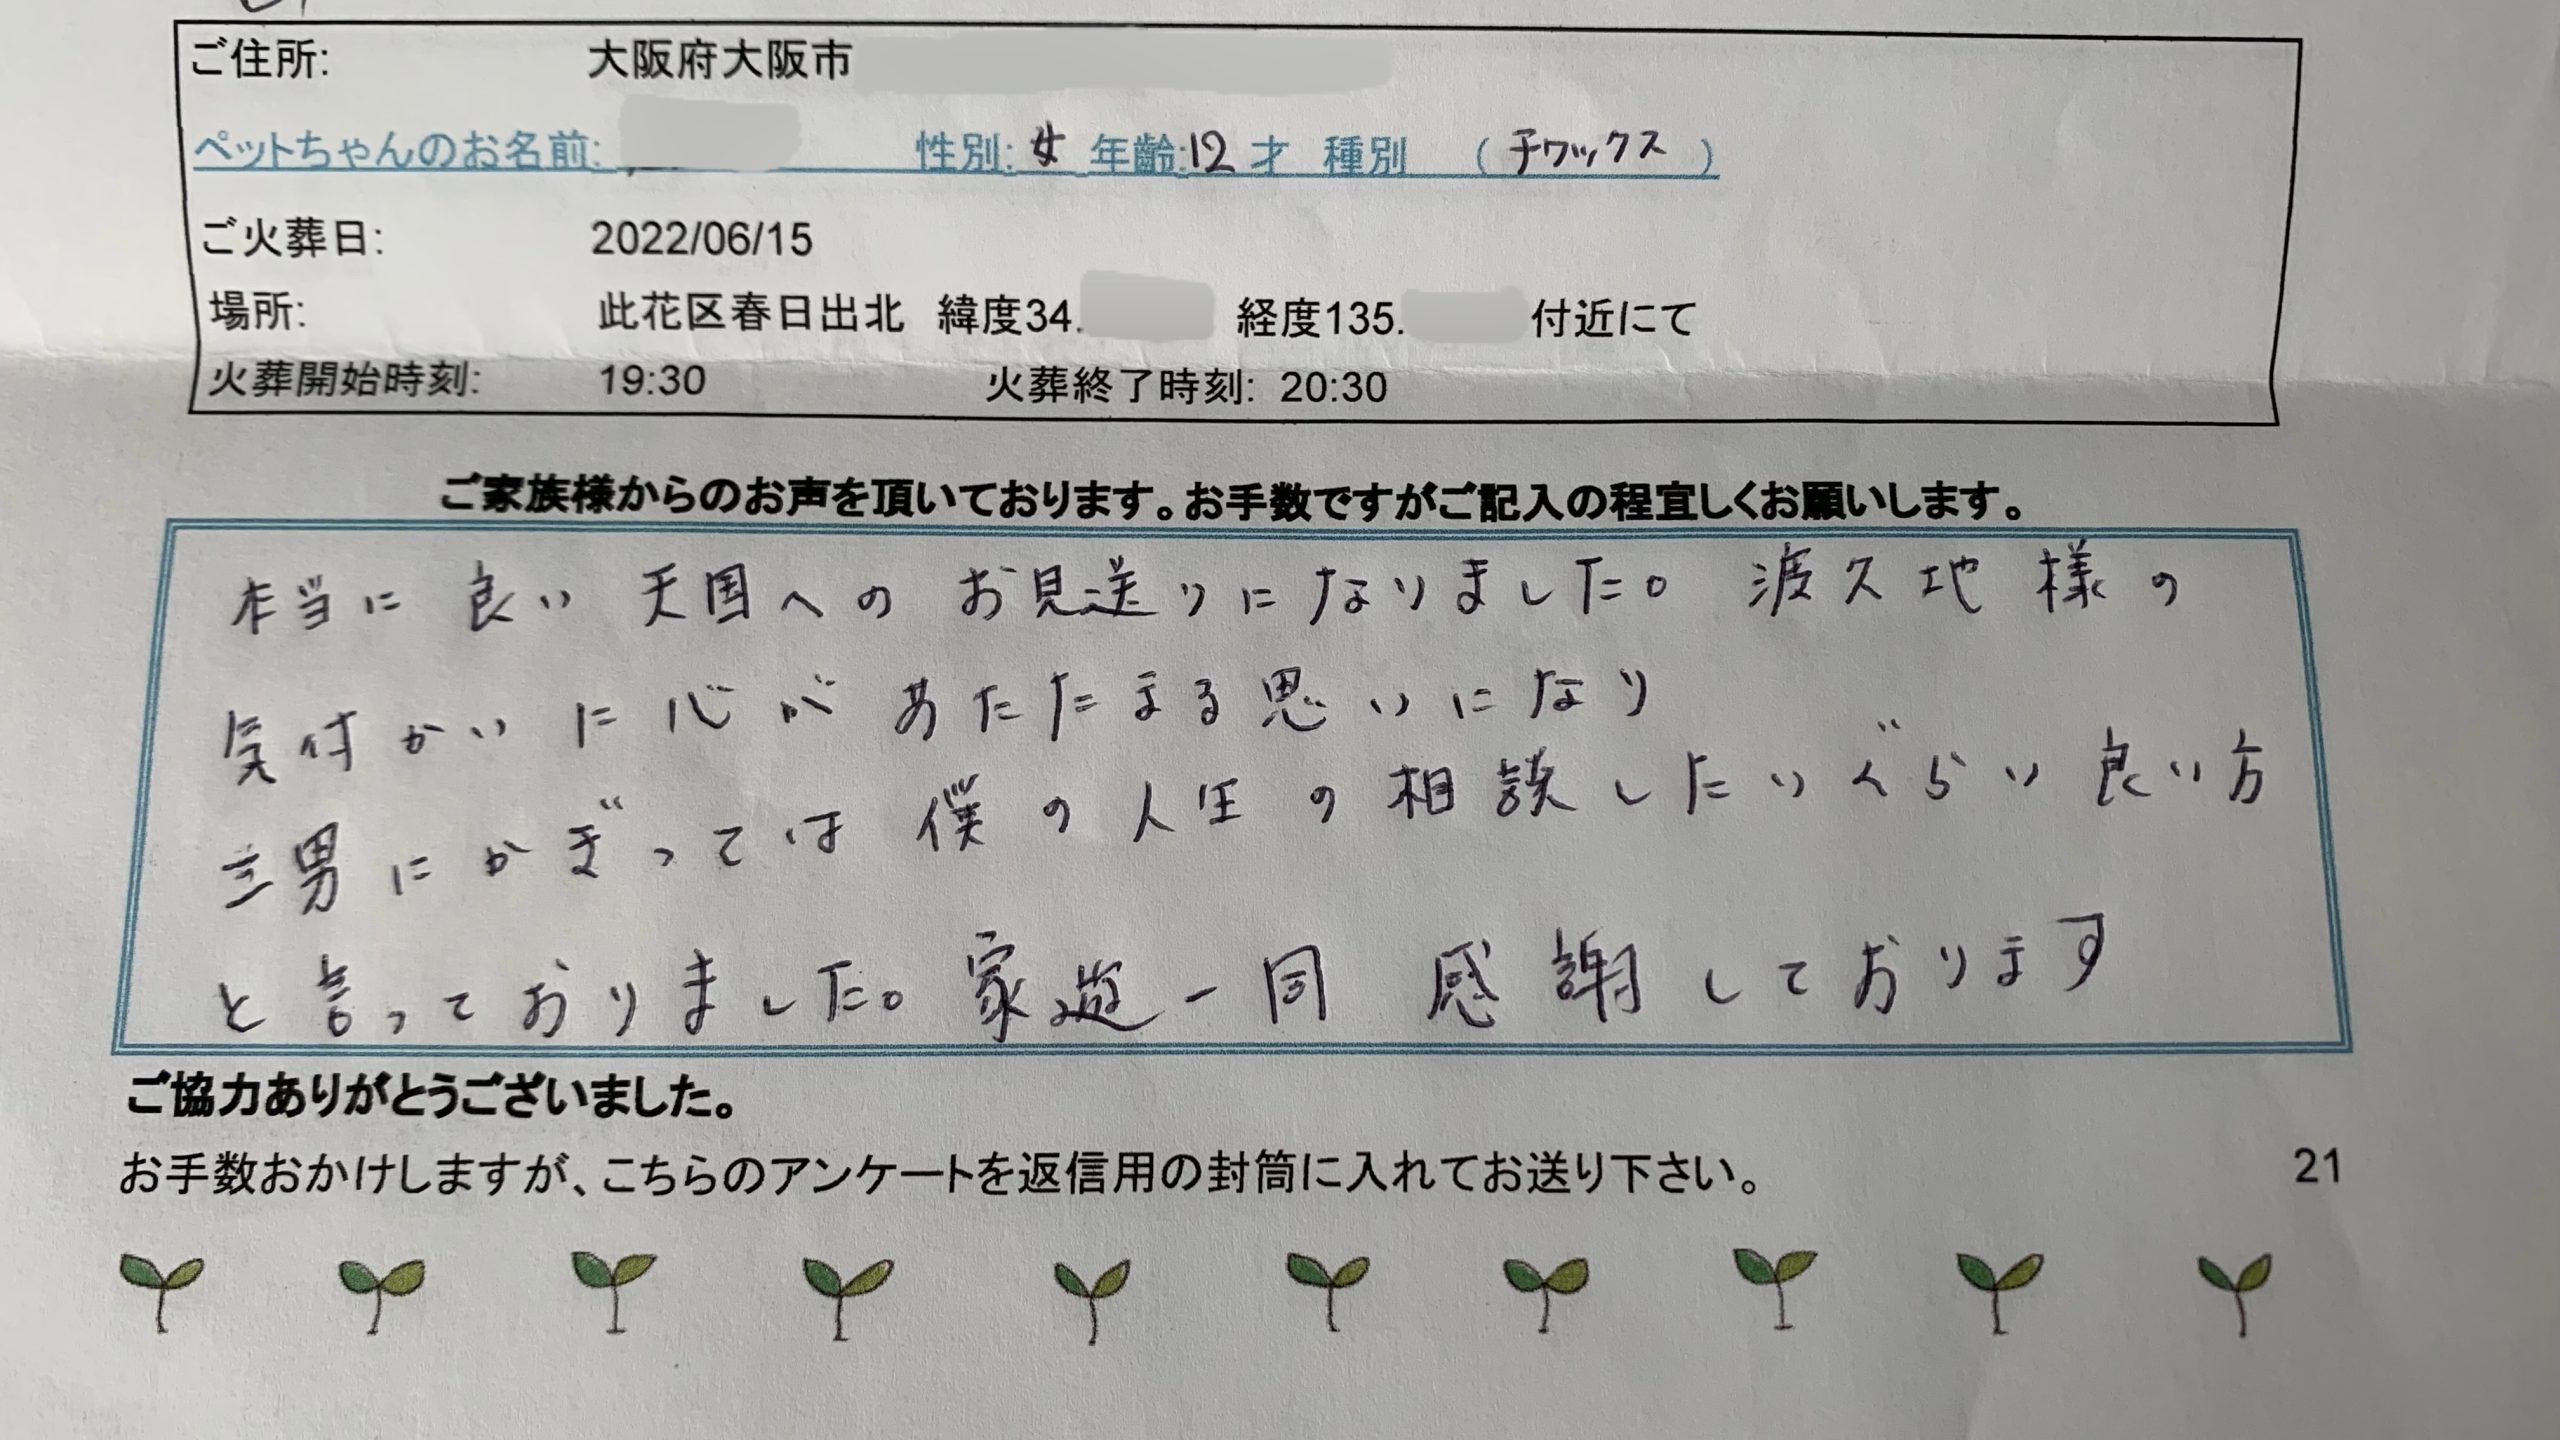 ご住所: 大阪府大阪市
ペットちゃんのお名前: 性別: 女 年齢:12 才 種別 (チワックス)
ご火葬日: 2022/06/15
場所: 此花区春日出北 緯度34. 経度135. 付近にて
火葬開始時刻: 19:30 火葬終了時刻: 20:30
ご家族様からのお声を頂いております。お手数ですがご記入の程宜しくお願いします。
本当に良い天国へのお見送りになりました。渡久地様の
気付かいに心があたたまる思いになり
三男にかぎっては僕の人生の相談したいぐらい良い方
と言っておりました。家遊一同 感謝しております
ご協力ありがとうございました。
お手数おかけしますが、こちらのアンケートを返信用の封筒に入れてお送り下さい。 21